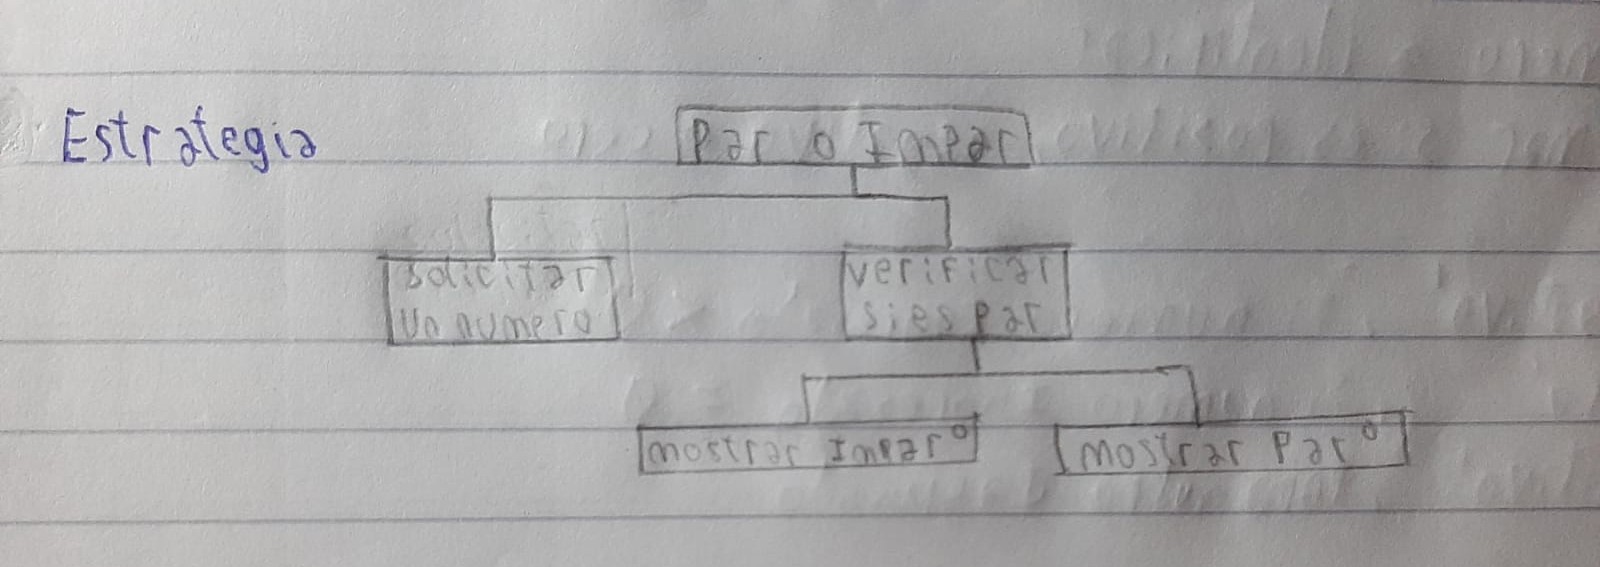 Estrategia
Par o Impar
solicitar
un numero
verificar
si es par
mostrar Impar°
mostrar Par°